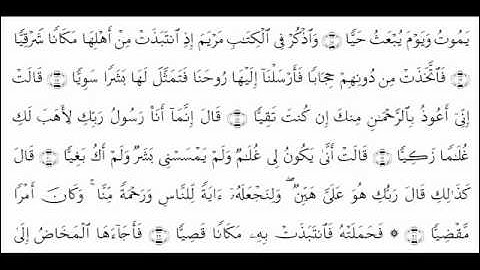 يَمُوتُ وَيَوْمَ يُبْعَثُ حَيًّا ۝ وَٱذْكُرْ فِى ٱلْكِتَـٰبِ مَرْيَمَ إِذِ ٱنتَبَذَتْ مِنْ أَهْلِهَا مَكَانًا شَرْقِيًّا
۝ فَٱتَّخَذَتْ مِن دُونِهِمْ حِجَابًا فَأَرْسَلْنَآ إِلَيْهَا رُوحَنَا فَتَمَثَّلَ لَهَا بَشَرًا سَوِيًّا ۝ قَالَتْ
إِنِّىٓ أَعُوذُ بِٱلرَّحْمَـٰنِ مِنكَ إِن كُنتَ تَقِيًّا ۝ قَالَ إِنَّمَآ أَنَا۠ رَسُولُ رَبِّكِ لِأَهَبَ لَكِ
غُلَـٰمًا زَكِيًّا ۝ قَالَتْ أَنَّىٰ يَكُونُ لِى غُلَـٰمٌ وَلَمْ يَمْسَسْنِى بَشَرٌ وَلَمْ أَكُ بَغِيًّا ۝ قَالَ
كَذَٰلِكِ قَالَ رَبُّكِ هُوَ عَلَىَّ هَيِّنٌ ۖ وَلِنَجْعَلَهُۥٓ ءَايَةً لِّلنَّاسِ وَرَحْمَةً مِّنَّا ۚ وَكَانَ أَمْرًا
مَّقْضِيًّا ۝ ۞ فَحَمَلَتْهُ فَٱنتَبَذَتْ بِهِۦ مَكَانًا قَصِيًّا ۝ فَأَجَآءَهَا ٱلْمَخَاضُ إِلَىٰ